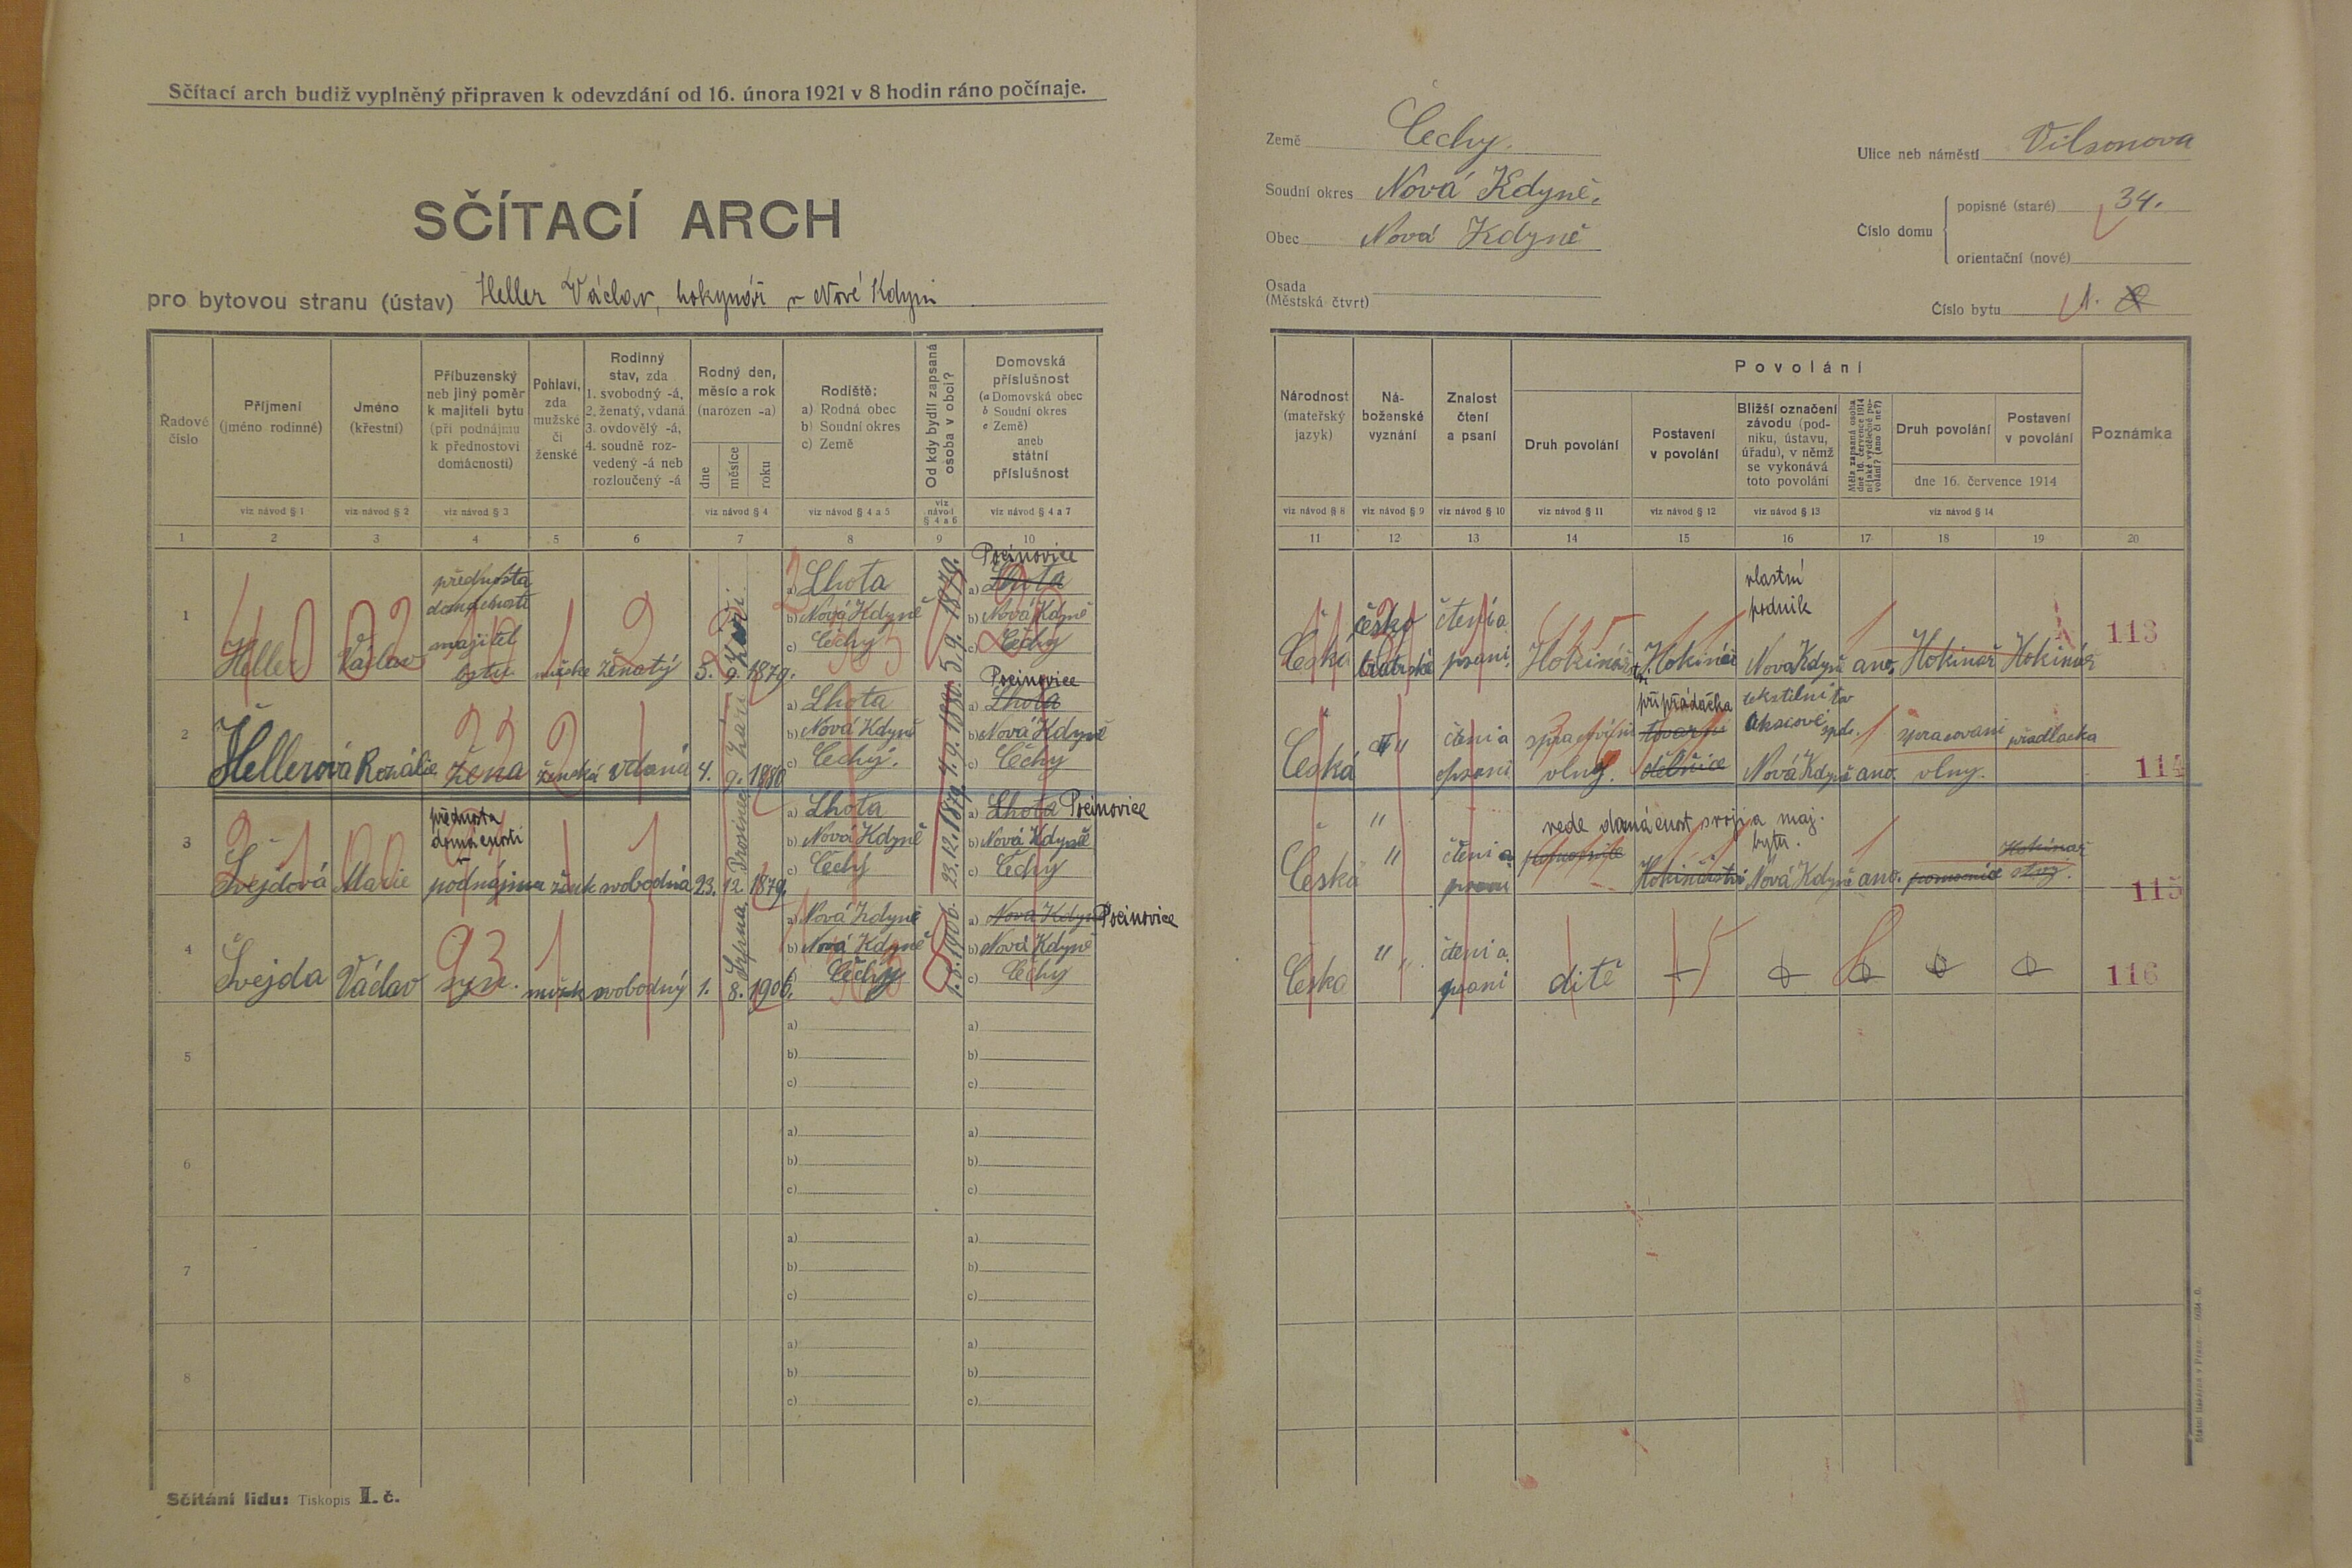 Sčítací arch budiž vyplněný připraven k odevzdání od 16. února 1921 v 8 hodin ráno počínaje.
SČÍTACÍ ARCH
pro bytovou stranu (ústav) Heller Václav, hokynář v Nové Kdyni
Země Čechy.
Soudní okres Nová Kdyně.
Obec Nová Kdyně
Osada
(Městská čtvrt)
Ulice neb náměstí Vilsonova
Číslo domu
popisné (staré) 34.
orientační (nové)
Číslo bytu 1.
Řadové číslo
Příjmení (jméno rodinné)
Jméno (křestní)
Příbuzenský neb jiný poměr k majiteli bytu (při podnájmu k přednostovi domácnosti)
Pohlaví, zda mužské či ženské
Rodinný stav, zda
1. svobodný -á,
2. ženatý, vdaná
3. ovdovělý -á,
4. soudně rozvedený -á neb rozloučený -á
Rodný den, měsíc a rok (narozen -a)
dne
měsíce
roku
Rodiště:
a) Rodná obec
b) Soudní okres
c) Země
Od kdy bydlí zapsaná osoba v obci?
Domovská příslušnost
(a Domovská obec
b Soudní okres
c Země)
aneb
státní
příslušnost
viz návod § 1
viz návod § 2
viz návod § 3
viz návod § 4
viz návod § 4 a 5
viz návod § 4 a 6
viz návod § 4 a 7
1 2 3 4 5 6 7 8 9 10
1
Heller
Václav
přednosta
domácnosti
majitel
bytu
mužské
ženatý
5.
9. Září
1879.
a) Lhota
b) Nová Kdyně
c) Čechy
5. 9. 1879.
Pocinovice
a) Lhota
b) Nová Kdyně
c) Čechy
2
Hellerová
Rozálie
žena
ženská
vdaná
4.
9. Září
1880
a) Lhota
b) Nová Kdyně
c) Čechy.
4. 9. 1880.
Pocinovice
a) Lhota
b) Nová Kdyně
c) Čechy
3
Švejdová
Marie
přednosta
domácnosti
podnájmu
žensk
svobodná
23.
12. Prosince
1879.
a) Lhota
b) Nová Kdyně
c) Čechy
23. 12. 1879.
a) Lhota Pocinovice
b) Nová Kdyně
c) Čechy
4
Švejda
Václav
syn.
mužsk
svobodný
1.
8. Srpna
1906.
a) Nová Kdyně
b) Nová Kdyně
Čechy
1. 8. 1906.
a) Nová Kdyně Pocinovice
b) Nová Kdyně
c) Čechy
5
a)
b)
c)
a)
b)
c)
6
a)
b)
c)
a)
b)
c)
7
a)
b)
c)
a)
b)
c)
8
a)
b)
c)
a)
b)
c)
Sčítání lidu: Tiskopis I. č.
Národnost (mateřský jazyk)
Náboženské vyznání
Znalost čtení a psaní
Povolání
Druh povolání
Postavení v povolání
Bližší označení závodu (podniku, ústavu, úřadu), v němž se vykonává toto povolání
Měla zapsaná osoba dne 16. července 1914 nějaké výdělečné povolání? (ano či ne?)
Druh povolání
Postavení v povolání
dne 16. července 1914
Poznámka
viz návod § 8
viz návod § 9
viz návod § 10
viz návod § 11
viz návod § 12
viz návod § 13
viz návod § 14
11 12 13 14 15 16 17 18 19 20
Česká
česko
bratrské
čtení a
psaní.
Hokinářst.
Hokinář
vlastní
podnik
Nová Kdyně
ano.
Hokinář
Hokinář
113
Česká
"
čtení a
psaní
spracování
vlny.
připřádačka
tovarní
dělnice
tekstilní tov
Nová Kdyně
ano.
spracovani
vlny.
přadlačka
114
Česká
"
"
čtení a
psaní
vede domácnost svoji a maj.
bytu.
pomocnice
Hokinářství
Nová Kdyně
ano.
pomocnice
Hokinář
115
Česká
"
čtení a
psaní
dítě
116